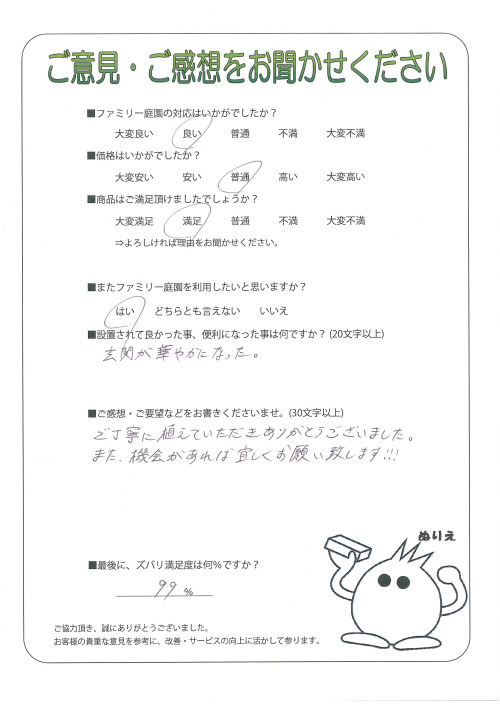 ご意見・ご感想をお聞かせください
■ファミリー庭園の対応はいかがでしたか？
大変良い 良い 普通 不満 大変不満
■価格はいかがでしたか？
大変安い 安い 普通 高い 大変高い
■商品はご満足頂けましたでしょうか？
大変満足 満足 普通 不満 大変不満
⇒よろしければ理由をお聞かせください。
■またファミリー庭園を利用したいと思いますか？
はい どちらとも言えない いいえ
■設置されて良かった事、便利になった事は何ですか？(20文字以上)
玄関が華やかになった。
■ご感想・ご要望などをお書きくださいませ。(30文字以上)
ご丁寧に植えていただきありがとうございました。
また、機会があれば宜しくお願い致します!!!
ぬりえ
■最後に、ズバリ満足度は何%ですか？
99 %
ご協力頂き、誠にありがとうございました。
お客様の貴重な意見を参考に、改善・サービスの向上に活かして参ります。